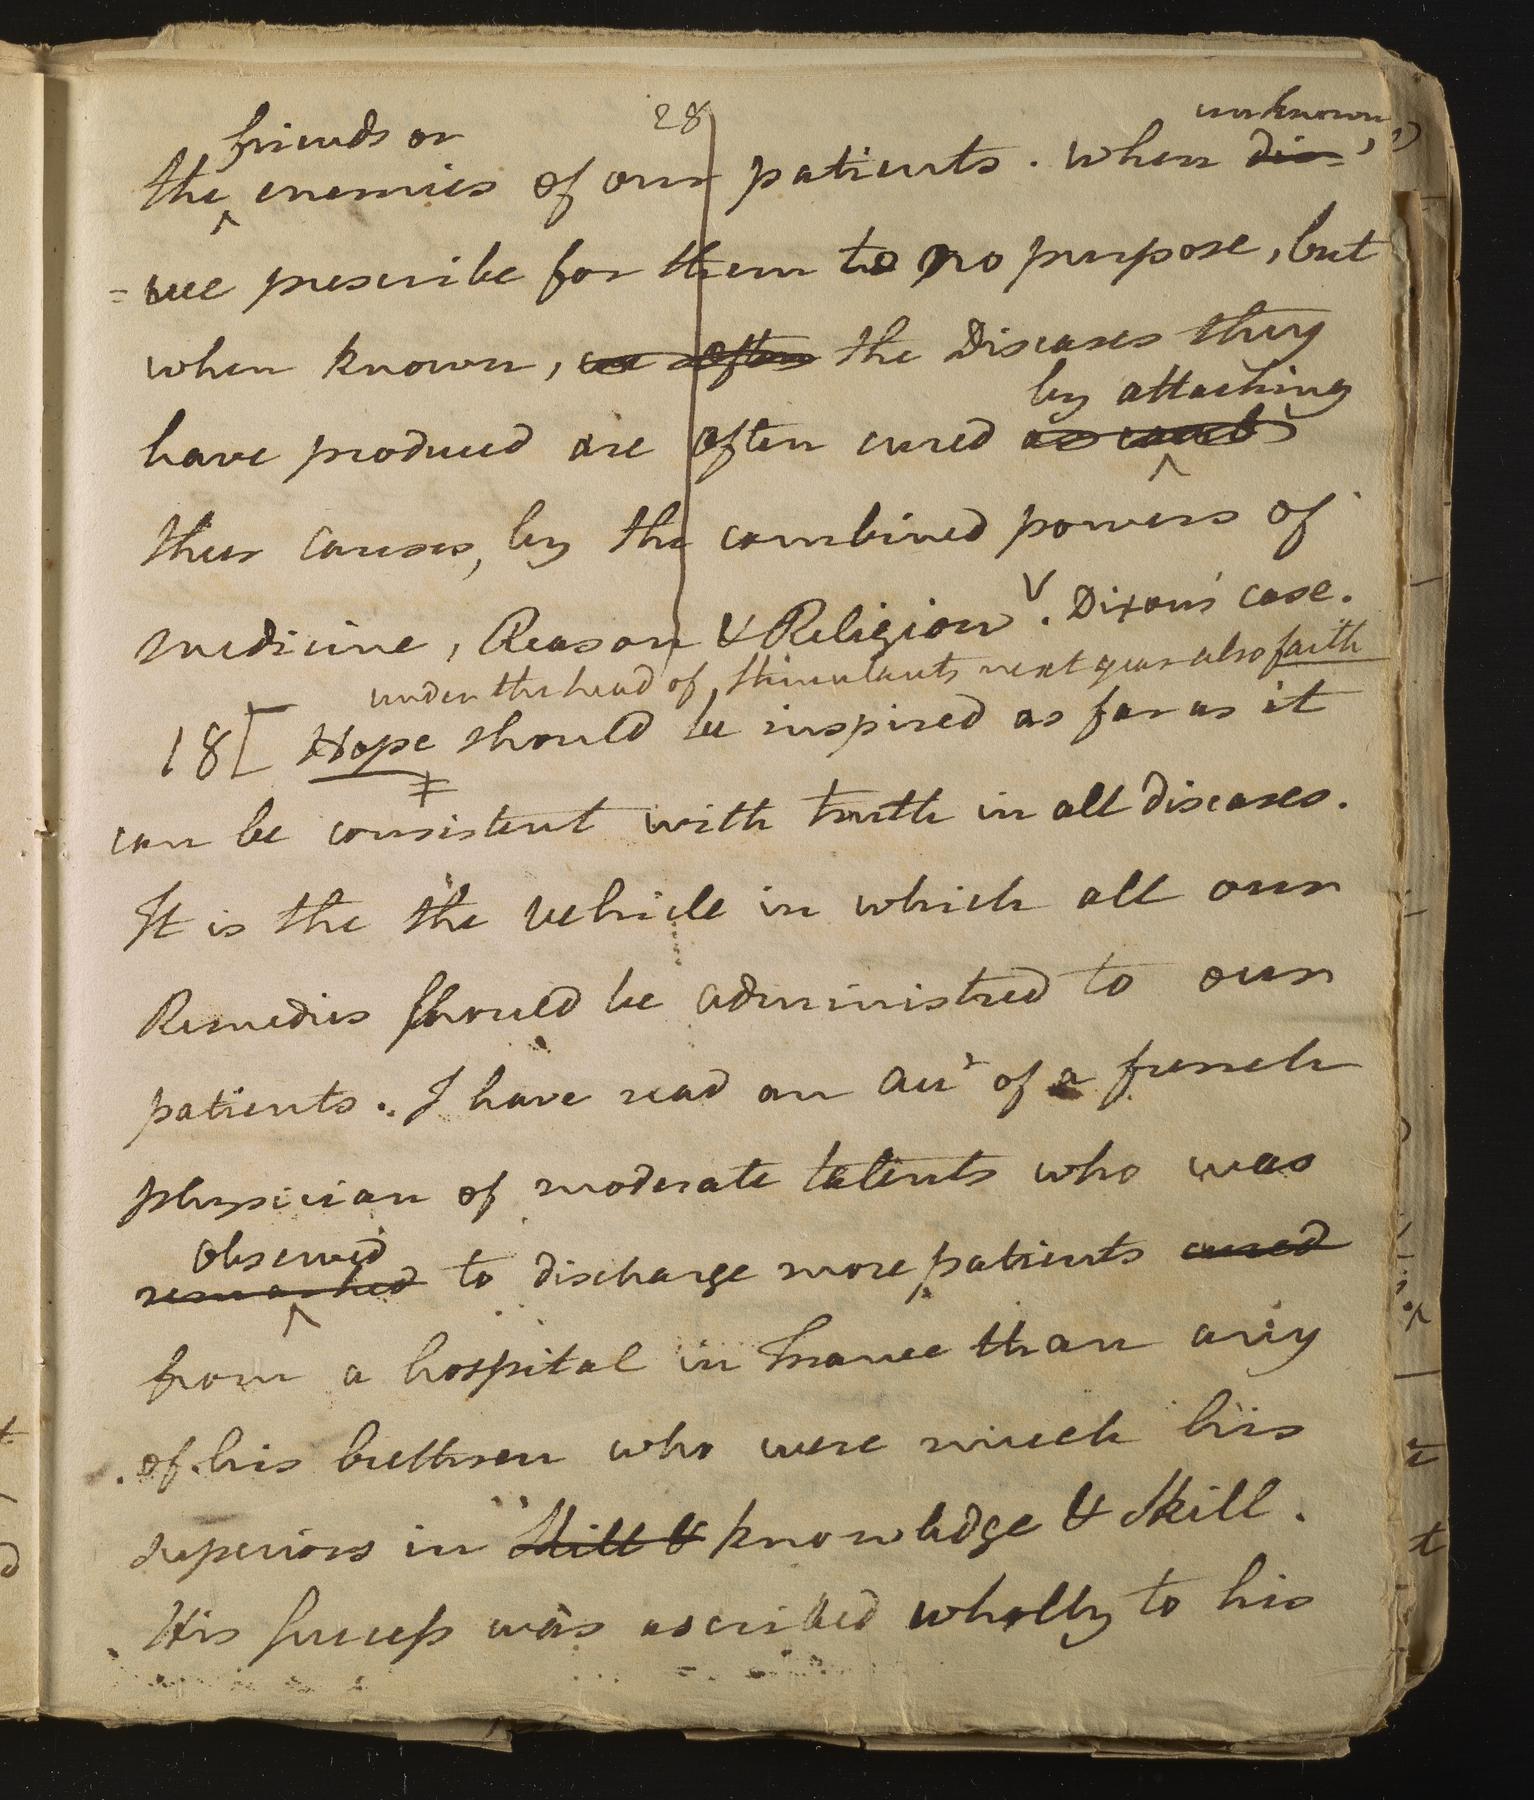 28
unknown,
friends or
the enemies of our patients. when dis-
= we prescribe for them to no purpose, but
when known, we often the Diseases they
by attaching
have produced are often cured
their causes, by the combined powers of
medicine, Reason & Religion. Dixons' case.
under the head of stimulants next year also faith
18[ Hope should be inspired as far as it
can be consistent with truth in all diseases.
It is the the vehicle in which all our
Remedies should be administred to our
patients. I have read an acct of a french
physician of moderate talents who was
observed
remarked to discharge more patients cured
from a hospital in France than any
of his brethren who were much his
superiors in skill & knowledge & skill.
His success was ascribed wholly to his